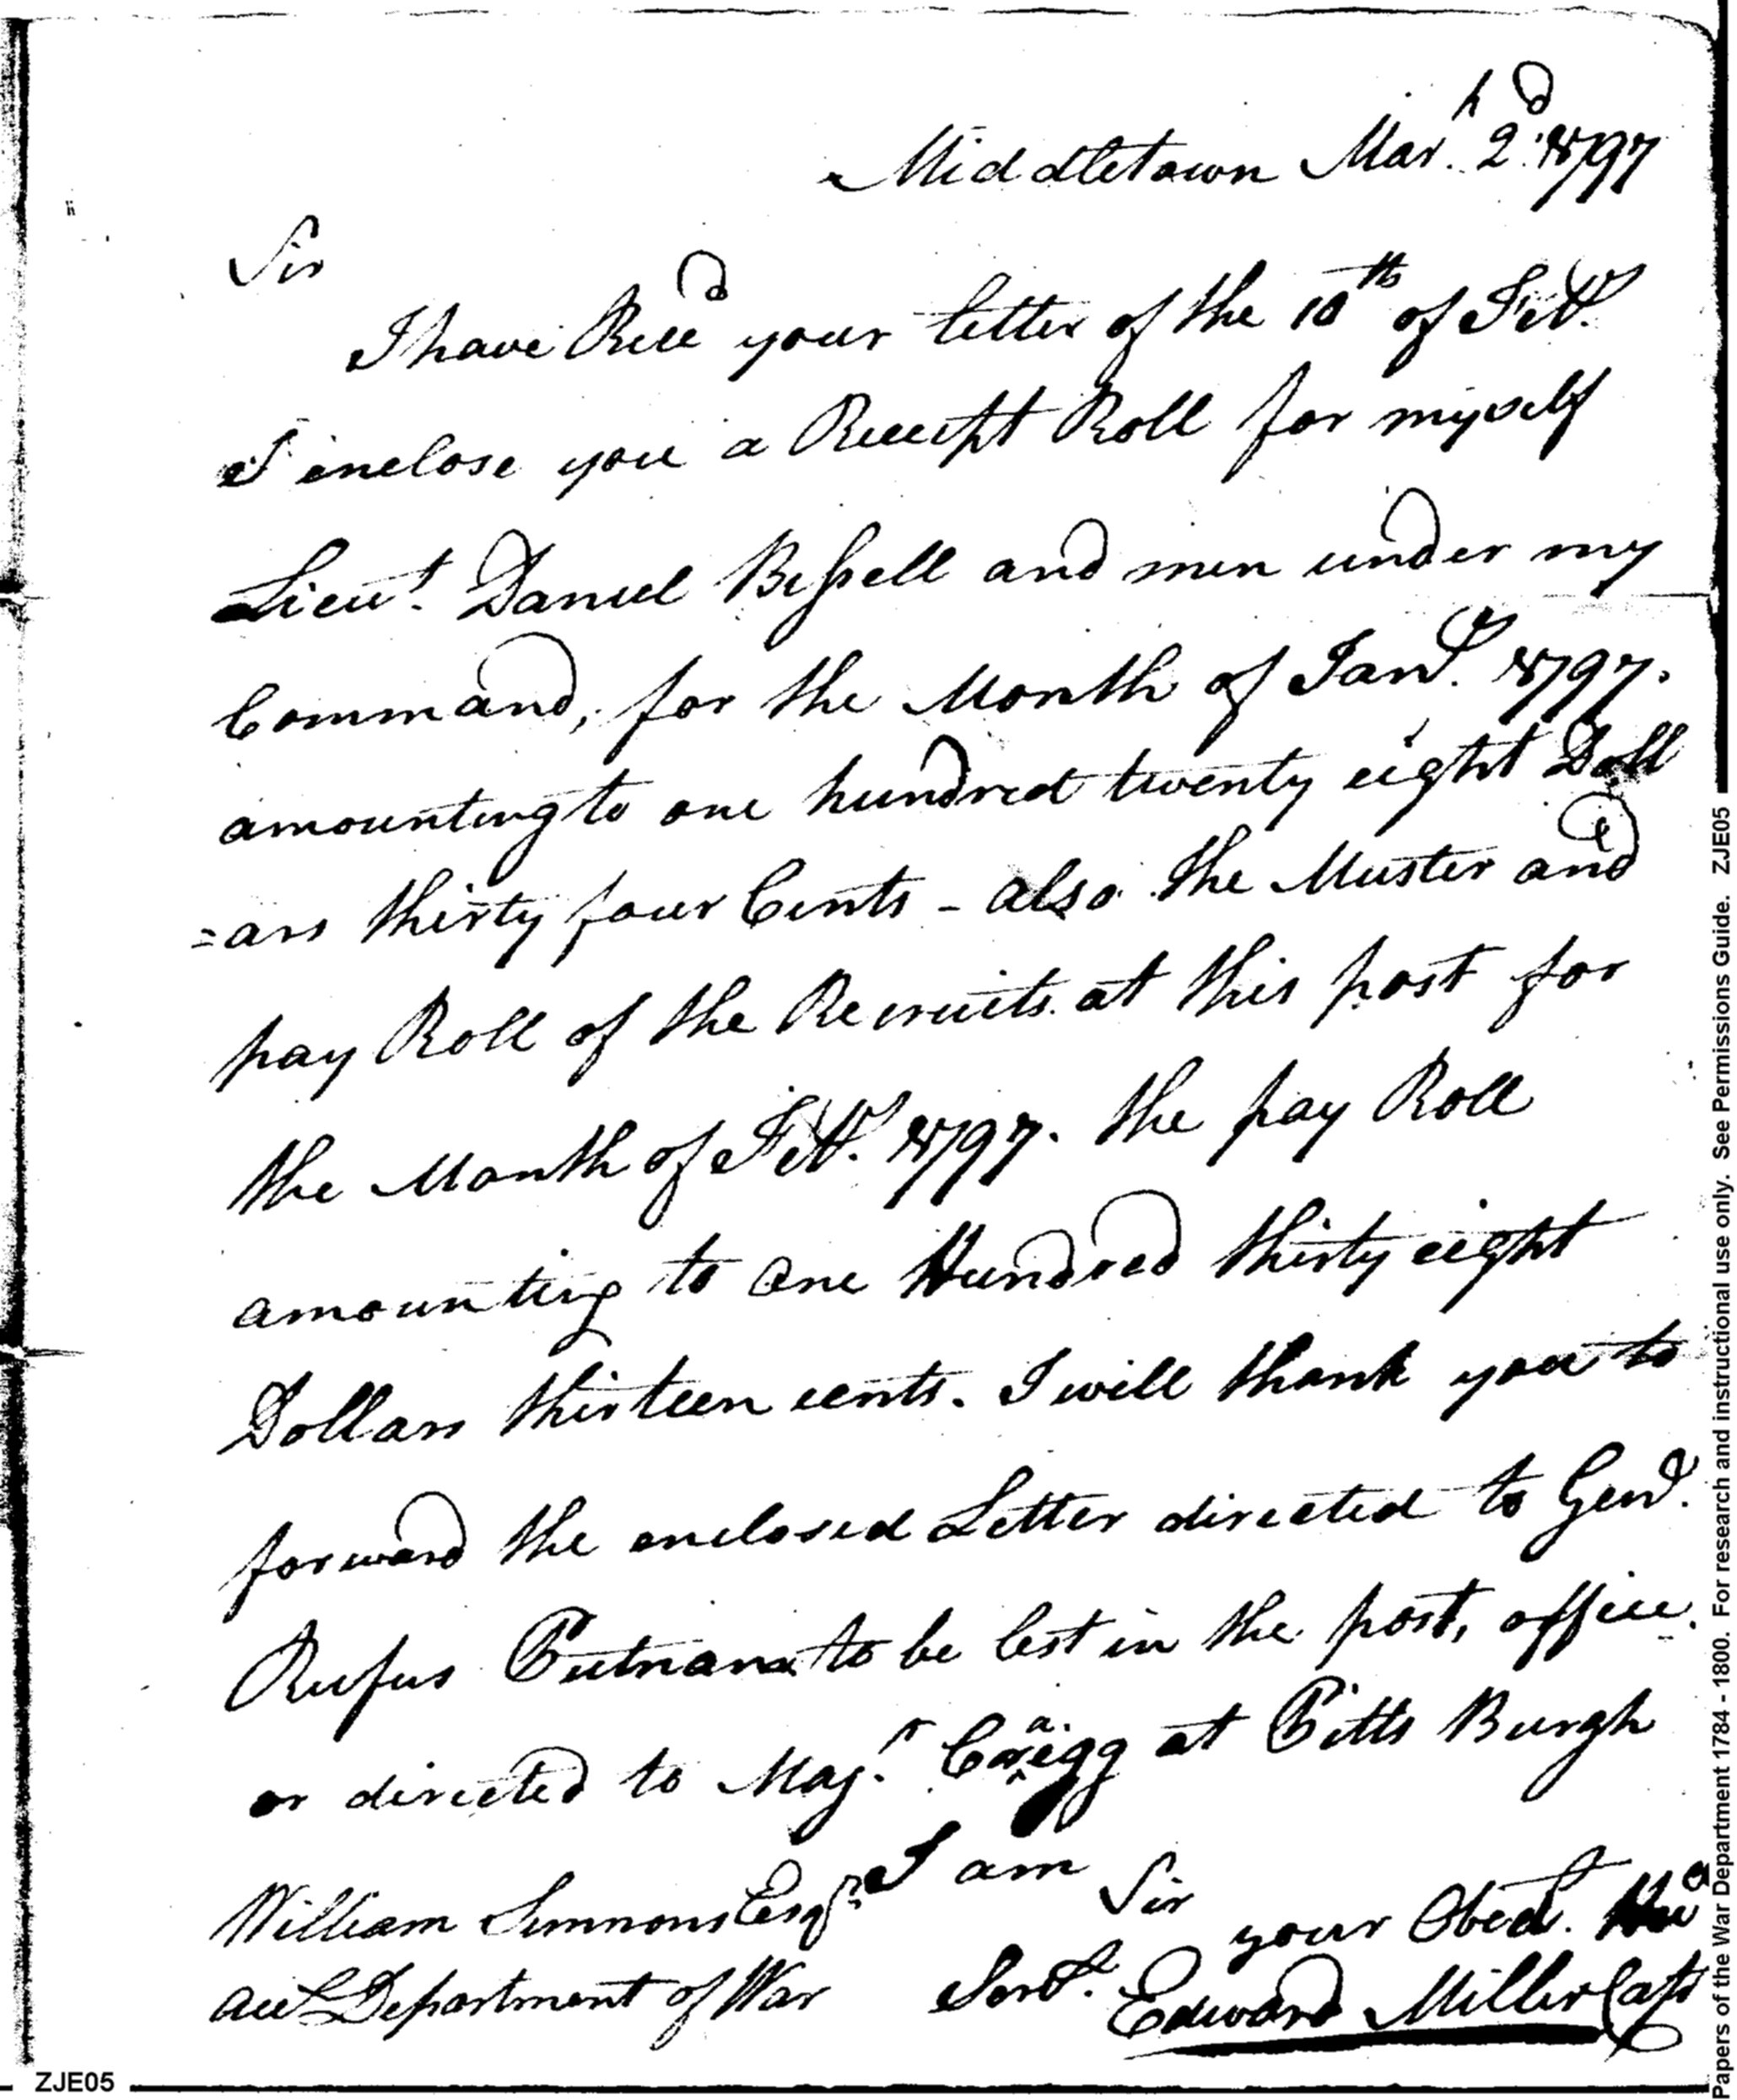 Middletown Marh. 2d. 1797
Sir
I have Recd your letter of the 10th of Feby.
I inclose you a Receipt Roll for myself
Lieut. Daniel Bissell and men under my
Command, for the Month of Jany. 1797.
amounting to one hundred twenty eight Doll
=ars thirty four Cents - also the Muster and
pay Roll of the Recruits at this post for
the Month of Feby. 1797. the pay Roll
amounting to One Hundred thirty eight
Dollars thirteen cents. I will thank you to
forward the enclosed Letter directed to Genl.
Rufus Putnam to be lest in the post, office.
or directed to Majr. Craigg at Pitts Burgh
I am Sir
your Obedt. Hue
Servt.
Edward Miller Capt
William Simmons Esqr.
Acct Department of War
ZJE05
Papers of the War Department 1784 - 1800. For research and instructional use only. See Permissions Guide. ZJE05